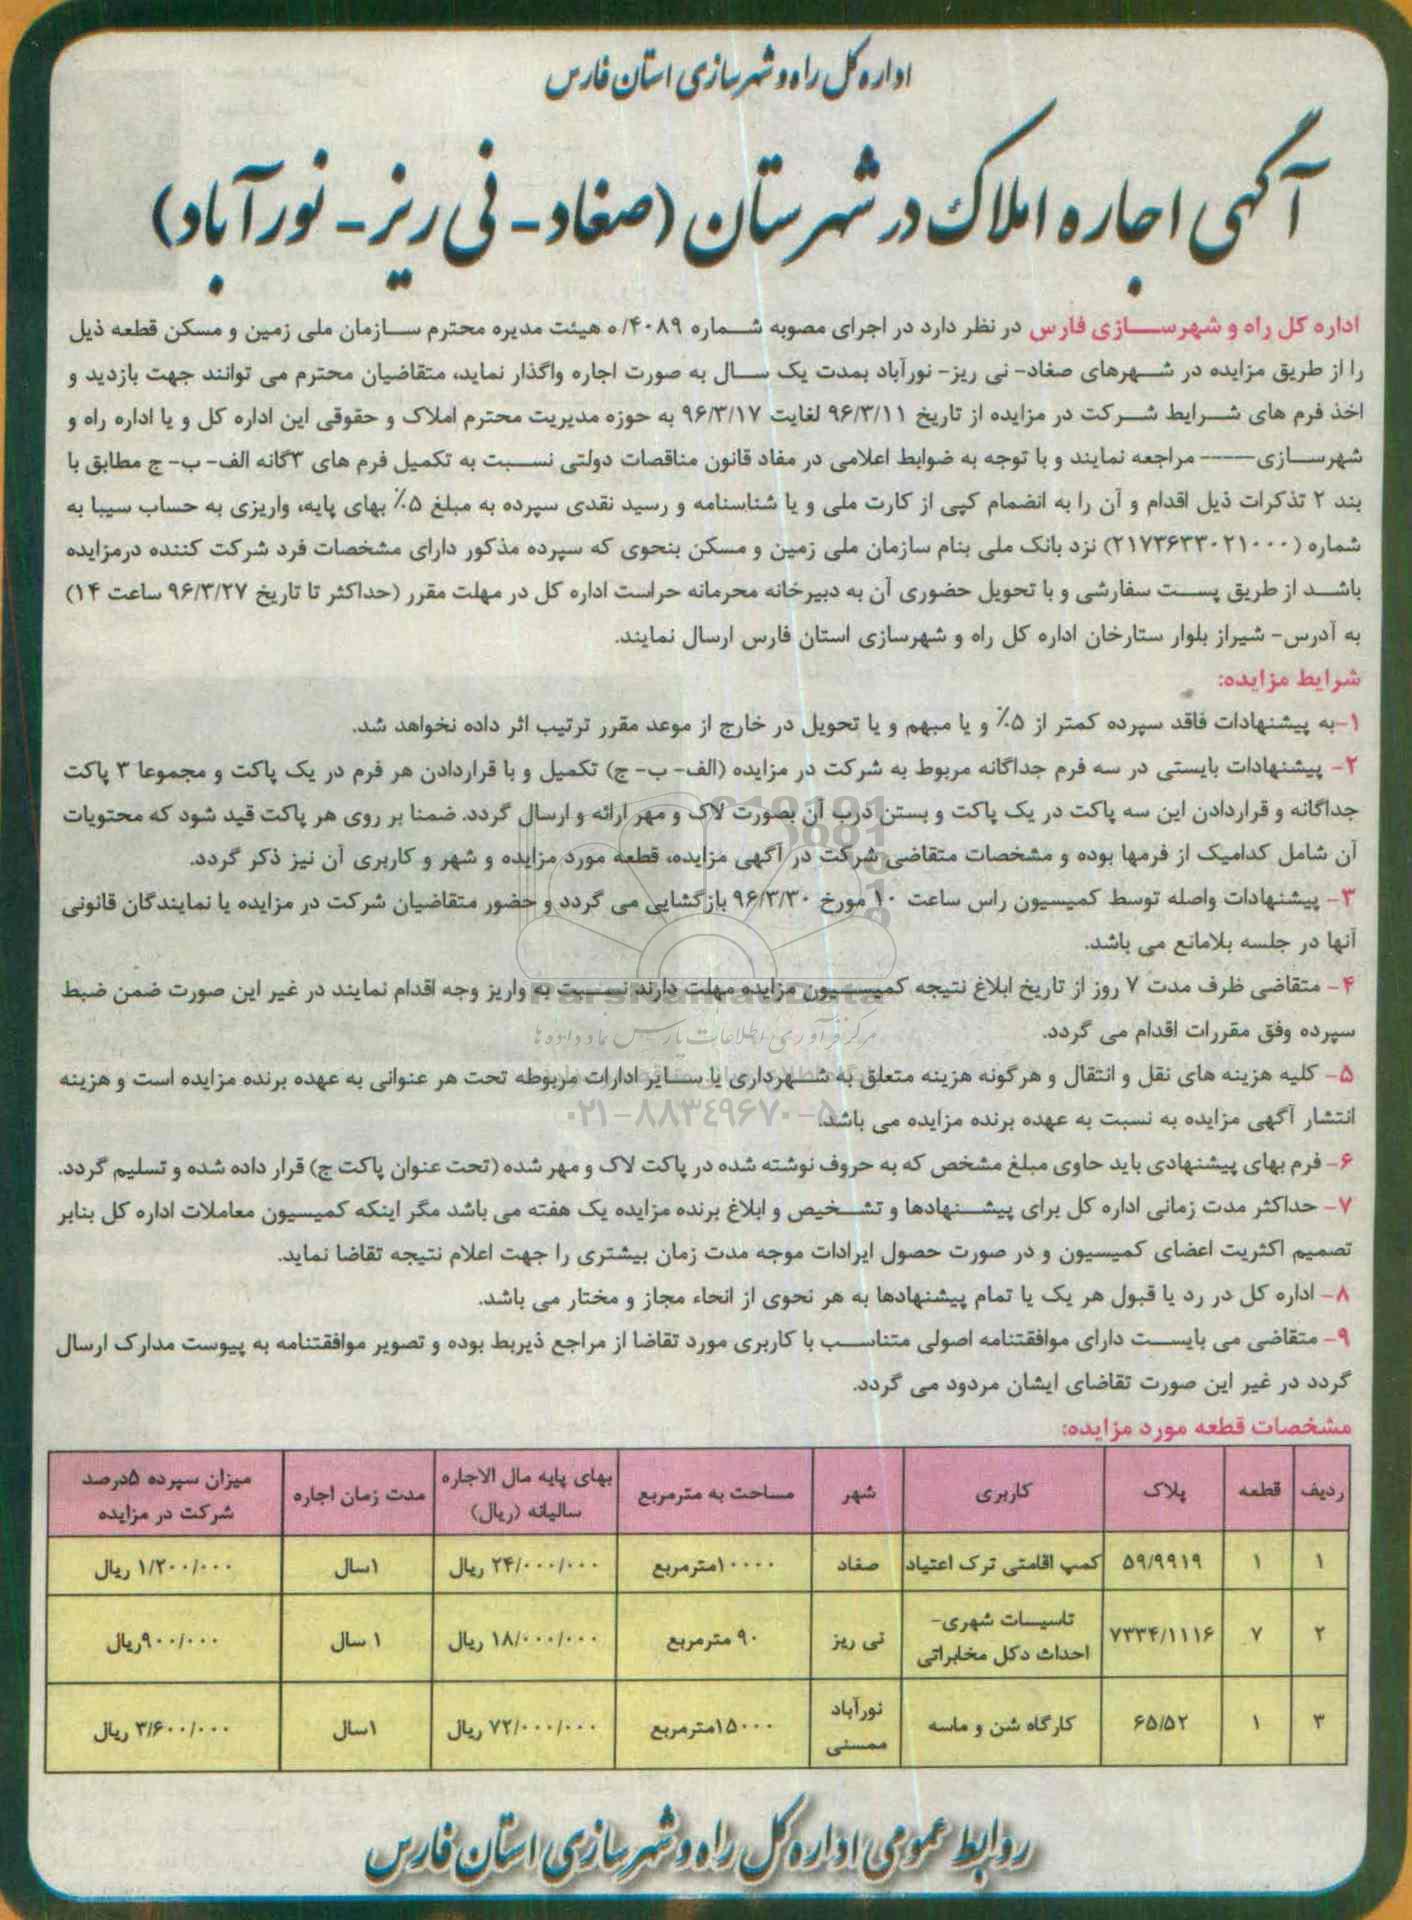 اداره کل راه و شهرسازی استان فارس
آگهی اجاره املاک در شهرستان (صغاد- نی ریز- نورآباد)
اداره کل راه و شهرسازی فارس در نظر دارد در اجرای مصوبه شماره ۴۰۸۹/ه هیئت مدیره محترم سازمان ملی زمین و مسکن قطعه ذیل
را از طریق مزایده در شهرهای صغاد- نی ریز- نورآباد بمدت یک سال به صورت اجاره واگذار نماید، متقاضیان محترم می توانند جهت بازدید و
اخذ فرم های شرایط شرکت در مزایده از تاریخ ۹۶/۳/۱۱ لغایت ۹۶/۳/۱۷ به حوزه مدیریت محترم املاک و حقوقی این اداره کل و یا اداره راه و
شهرسازی----- مراجعه نمایند و با توجه به ضوابط اعلامی در مفاد قانون مناقصات دولتی نسبت به تکمیل فرم های ۳گانه الف- ب- ج مطابق با
بند ۲ تذکرات ذیل اقدام و آن را به انضمام کپی از کارت ملی و یا شناسنامه و رسید نقدی سپرده به مبلغ ۵٪ بهای پایه، واریزی به حساب سیبا به
شماره (۲۱۷۳۶۳۳۰۲۱۰۰۰) نزد بانک ملی بنام سازمان ملی زمین و مسکن بنحوی که سپرده مذکور دارای مشخصات فرد شرکت کننده درمزایده
باشد از طریق پست سفارشی و با تحویل حضوری آن به دبیرخانه محرمانه حراست اداره کل در مهلت مقرر (حداکثر تا تاریخ ۹۶/۳/۲۷ ساعت ۱۴)
به آدرس- شیراز بلوار ستارخان اداره کل راه و شهرسازی استان فارس ارسال نمایند.
شرایط مزایده:
۱-به پیشنهادات فاقد سپرده کمتر از ۵٪ و یا مبهم و یا تحویل در خارج از موعد مقرر ترتیب اثر داده نخواهد شد.
۲- پیشنهادات بایستی در سه فرم جداگانه مربوط به شرکت در مزایده (الف- ب- ج) تکمیل و با قراردادن هر فرم در یک پاکت و مجموعا ۳ پاکت
جداگانه و قراردادن این سه پاکت در یک پاکت و بستن درب آن بصورت لاک و مهر ارائه و ارسال گردد. ضمنا بر روی هر پاکت قید شود که محتویات
آن شامل کدامیک از فرمها بوده و مشخصات متقاضی شرکت در آگهی مزایده، قطعه مورد مزایده و شهر و کاربری آن نیز ذکر گردد.
۳- پیشنهادات واصله توسط کمیسیون راس ساعت ۱۰ مورخ ۹۶/۳/۳۰ بازگشایی می گردد و حضور متقاضیان شرکت در مزایده یا نمایندگان قانونی
آنها در جلسه بلامانع می باشد.
۴- متقاضی ظرف مدت ۷ روز از تاریخ ابلاغ نتیجه کمیسیون مزایده مهلت دارند نسبت به واریز وجه اقدام نمایند در غیر این صورت ضمن ضبط
ParsNamadData
سپرده وفق مقررات اقدام می گردد.
مرکز فرآوری اطلاعات پارس نماد داده ها
۵- کلیه هزینه های نقل و انتقال و هرگونه هزینه متعلق به شهرداری یا سایر ادارات مربوطه تحت هر عنوانی به عهده برنده مزایده است و هزینه
انتشار آگهی مزایده به نسبت به عهده برنده مزایده می باشد.
۰۲۱-۸۸۳۴۹۶۷۰-۵
۶- فرم بهای پیشنهادی باید حاوی مبلغ مشخص که به حروف نوشته شده در پاکت لاک و مهر شده (تحت عنوان پاکت ج) قرار داده شده و تسلیم گردد.
۷- حداکثر مدت زمانی اداره کل برای پیشنهادها و تشخیص و ابلاغ برنده مزایده یک هفته می باشد مگر اینکه کمیسیون معاملات اداره کل بنابر
تصمیم اکثریت اعضای کمیسیون و در صورت حصول ایرادات موجه مدت زمان بیشتری را جهت اعلام نتیجه تقاضا نماید.
۸- اداره کل در رد یا قبول هر یک یا تمام پیشنهادها به هر نحوی از انحاء مجاز و مختار می باشد.
۹- متقاضی می بایست دارای موافقتنامه اصولی متناسب با کاربری مورد تقاضا از مراجع ذیربط بوده و تصویر موافقتنامه به پیوست مدارک ارسال
گردد در غیر این صورت تقاضای ایشان مردود می گردد.
مشخصات قطعه مورد مزایده:
ردیف قطعه پلاک کاربری شهر مساحت به مترمربع بهای پایه مال الاجاره سالیانه (ریال) مدت زمان اجاره میزان سپرده ۵درصد شرکت در مزایده
۱ ۱ ۵۹/۹۹۱۹ کمپ اقامتی ترک اعتیاد صغاد ۱۰۰۰۰مترمربع ۲۴/۰۰۰/۰۰۰ ریال ۱سال ۱/۲۰۰/۰۰۰ ریال
۲ ۷ ۷۳۳۴/۱۱۱۶ تاسیسات شهری- احداث دکل مخابراتی نی ریز ۹۰ مترمربع ۱۸/۰۰۰/۰۰۰ ریال ۱ سال ۹۰۰/۰۰۰ریال
۳ ۱ ۶۵/۵۲ کارگاه شن و ماسه نورآباد ممسنی ۱۵۰۰۰مترمربع ۷۲/۰۰۰/۰۰۰ ریال ۱سال ۳/۶۰۰/۰۰۰ ریال
روابط عمومی اداره کل راه و شهرسازی استان فارس